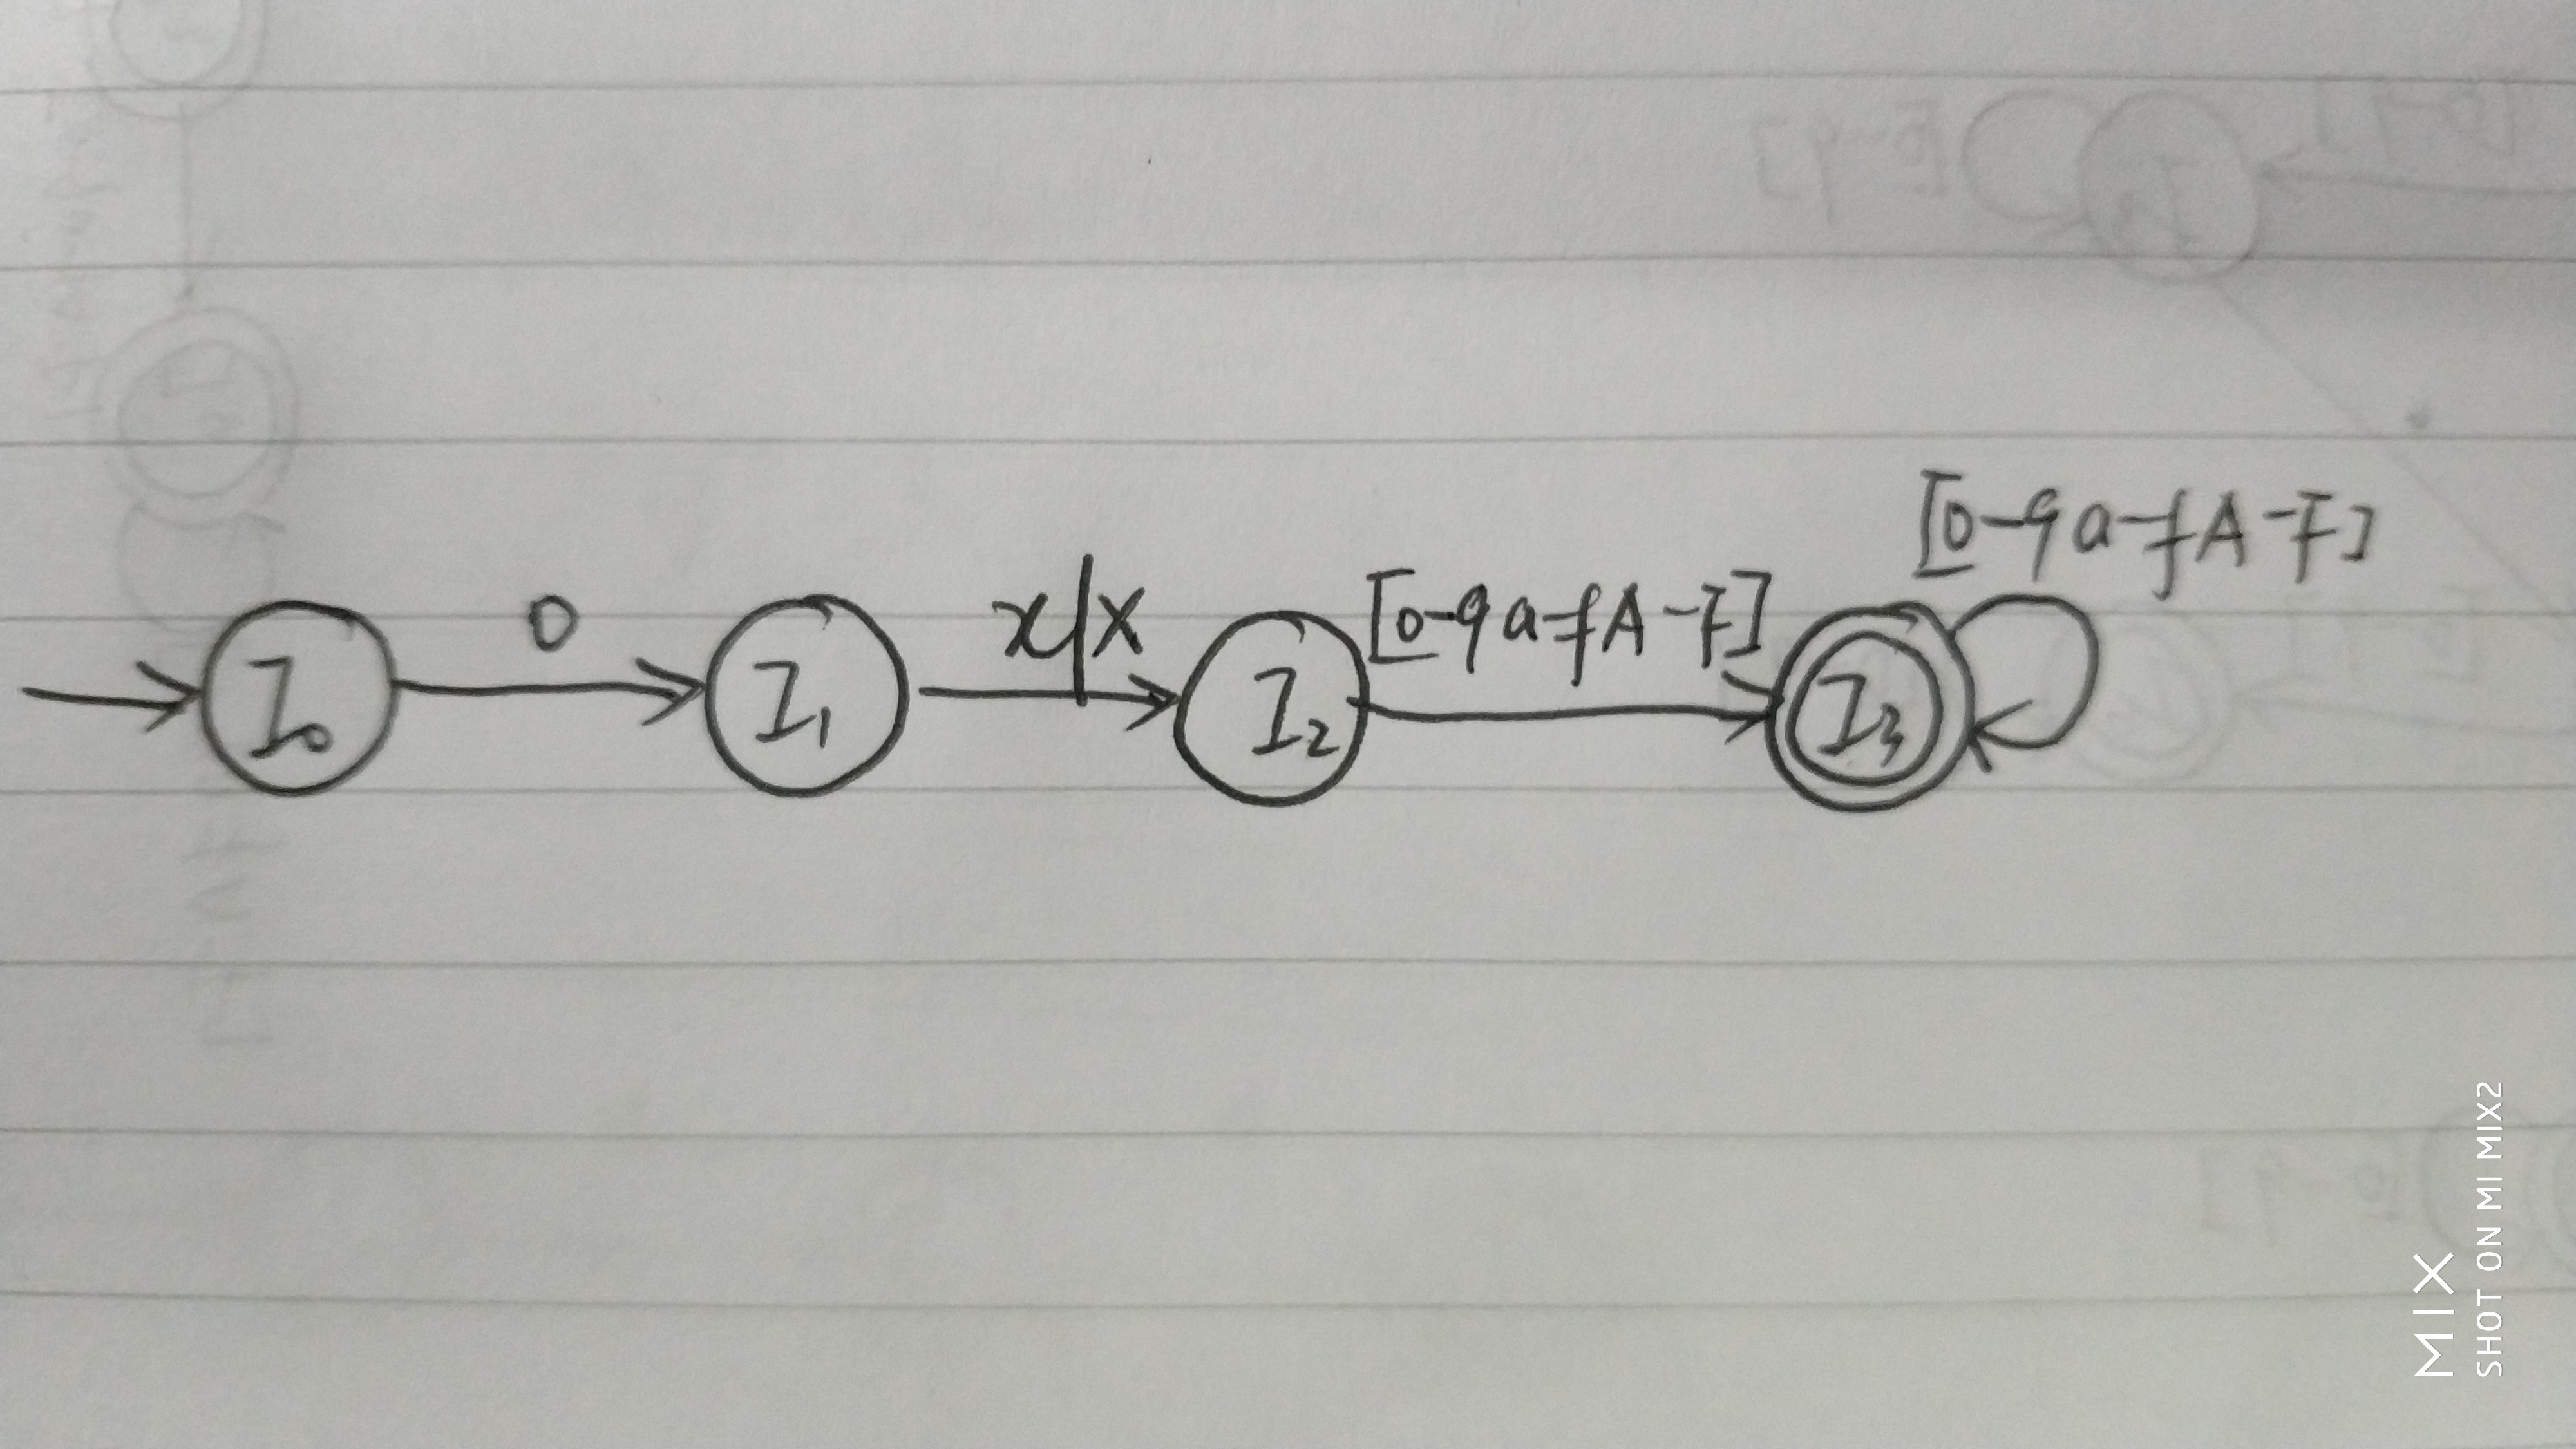 I0
0
I1
x|X
I2
[0-9a-fA-F]
I3
[0-9a-fA-F]
MIX
SHOT ON MI MIX2